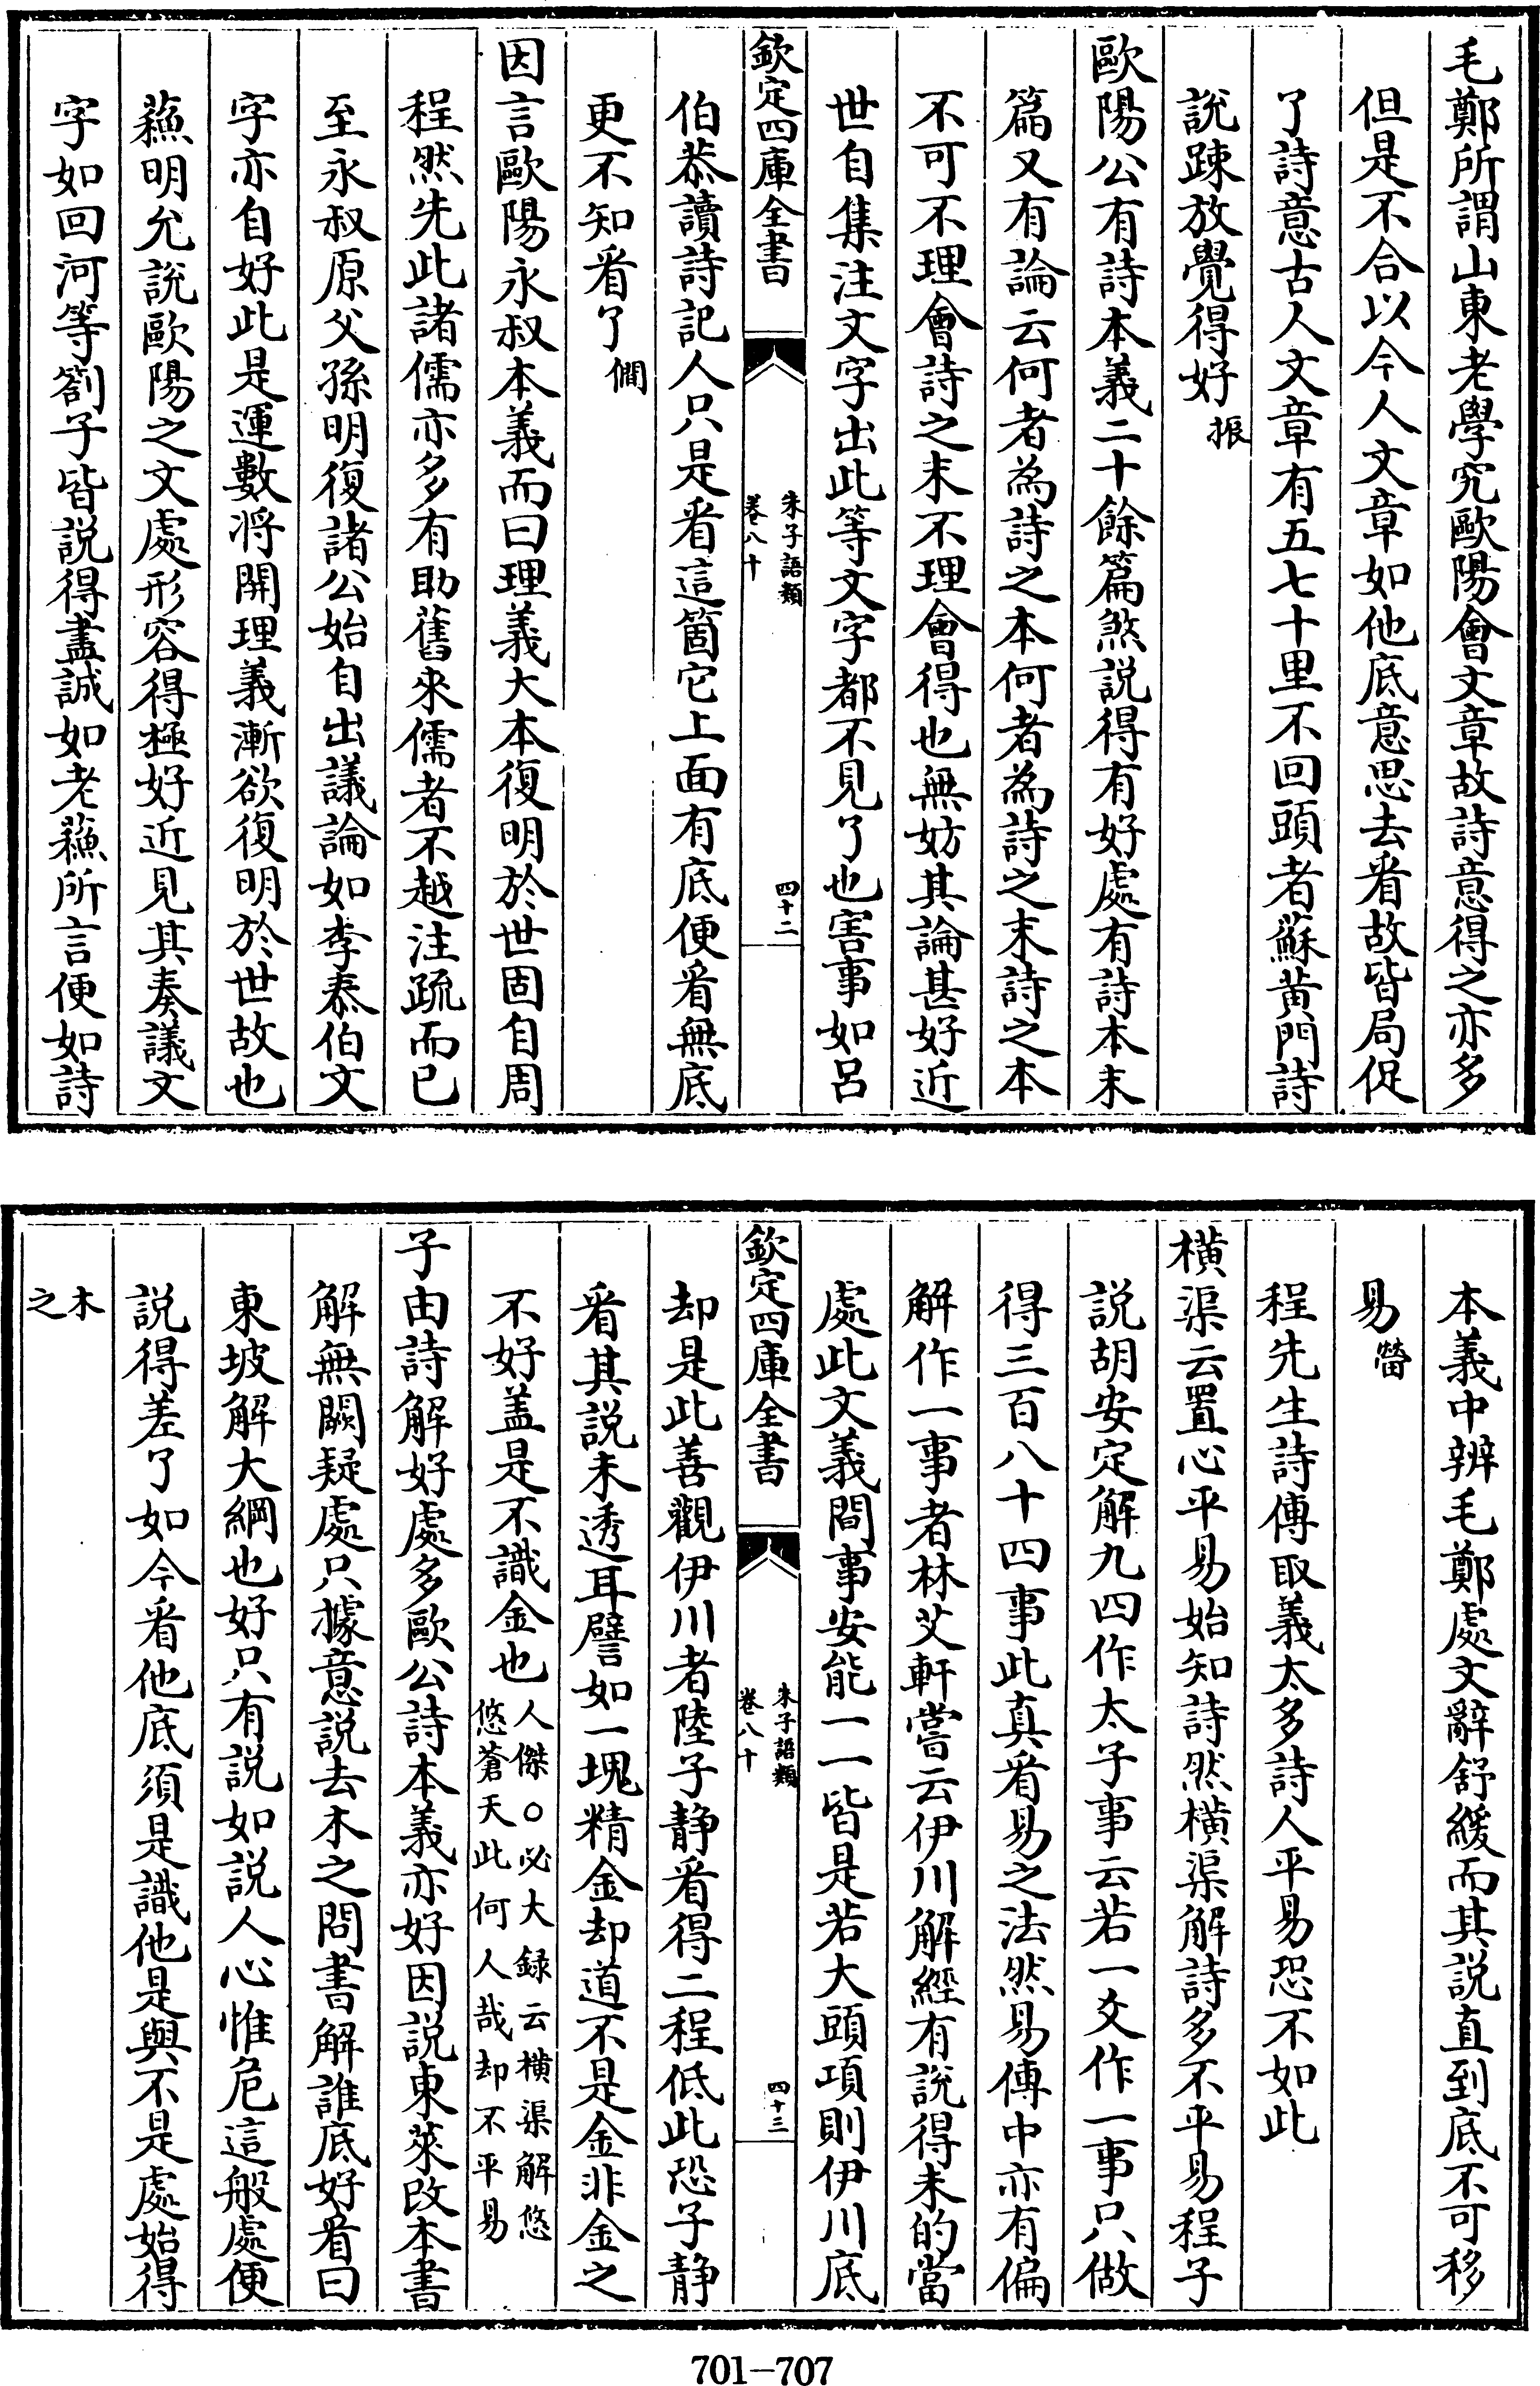 毛鄭所謂山東老學究歐陽會文章故詩意得之亦多
但是不合以今人文章如他底意思去看故皆局促
了詩意古人文章有五七十里不回頭者蘇黄門詩
說踈放覺得好振
歐陽公有詩本義二十餘篇煞說得有好處有詩本末
篇又有論云何者為詩之本何者為詩之末詩之本
不可不理會詩之末不理會得也無妨其論甚好近
世自集注文字出此等文字都不見了也害事如呂
欽定四庫全書
朱子語類
卷八十
四十二
伯恭讀詩記人只是看這箇它上面有底便看無底
更不知看了僩
因言歐陽永叔本義而曰理義大本復明於世固自周
程然先此諸儒亦多有助舊來儒者不越注疏而已
至永叔原父孫明復諸公始自出議論如李泰伯文
字亦自好此是運數將開理義漸欲復明於世故也
蘓明允說歐陽之文處形容得極好近見其奏議文
字如回河等劄子皆說得盡誠如老蘓所言便如詩
本義中辨毛鄭處文辭舒緩而其說直到底不可移
易㽦
程先生詩傳取義太多詩人平易恐不如此
横渠云置心平易始知詩然横渠解詩多不平易程子
說胡安定解九四作太子事云若一爻作一事只做
得三百八十四事此真看易之法然易傳中亦有偏
解作一事者林艾軒嘗云伊川解經有說得未的當
處此文義間事安能一一皆是若大頭項則伊川底
欽定四庫全書
朱子語類
卷八十
四十三
却是此善觀伊川者陸子靜看得二程低此恐子靜
看其說未透耳譬如一塊精金却道不是金非金之
不好盖是不識金也人傑○必大録云横渠解悠
悠蒼天此何人哉却不平易
子由詩解好處多歐公詩本義亦好因說東萊改本書
解無闕疑處只據意說去木之問書解誰底好看曰
東坡解大綱也好只有說如說人心惟危這般處便
說得差了如今看他底須是識他是與不是處始得
木
之
701—707